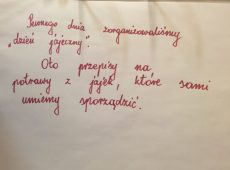 Pewnego dnia zorganizowaliśmy
„dzień jajeczny".
Oto przepisy na
potrawy z jajek, które sami
umiemy sporządzić.